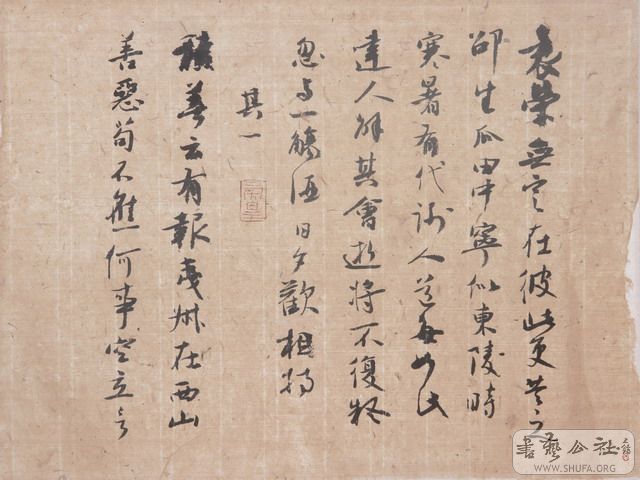 衰榮無定在彼此更共之
邵生瓜田中寧似東陵時
寒暑有代謝人道每如此
達人解其會逝將不復疑
忽与一觴酒日夕歡相持
其一
積善云有報夷叔在西山
善惡苟不應何事空立言
書藝公社
WWW.SHUFA.ORG